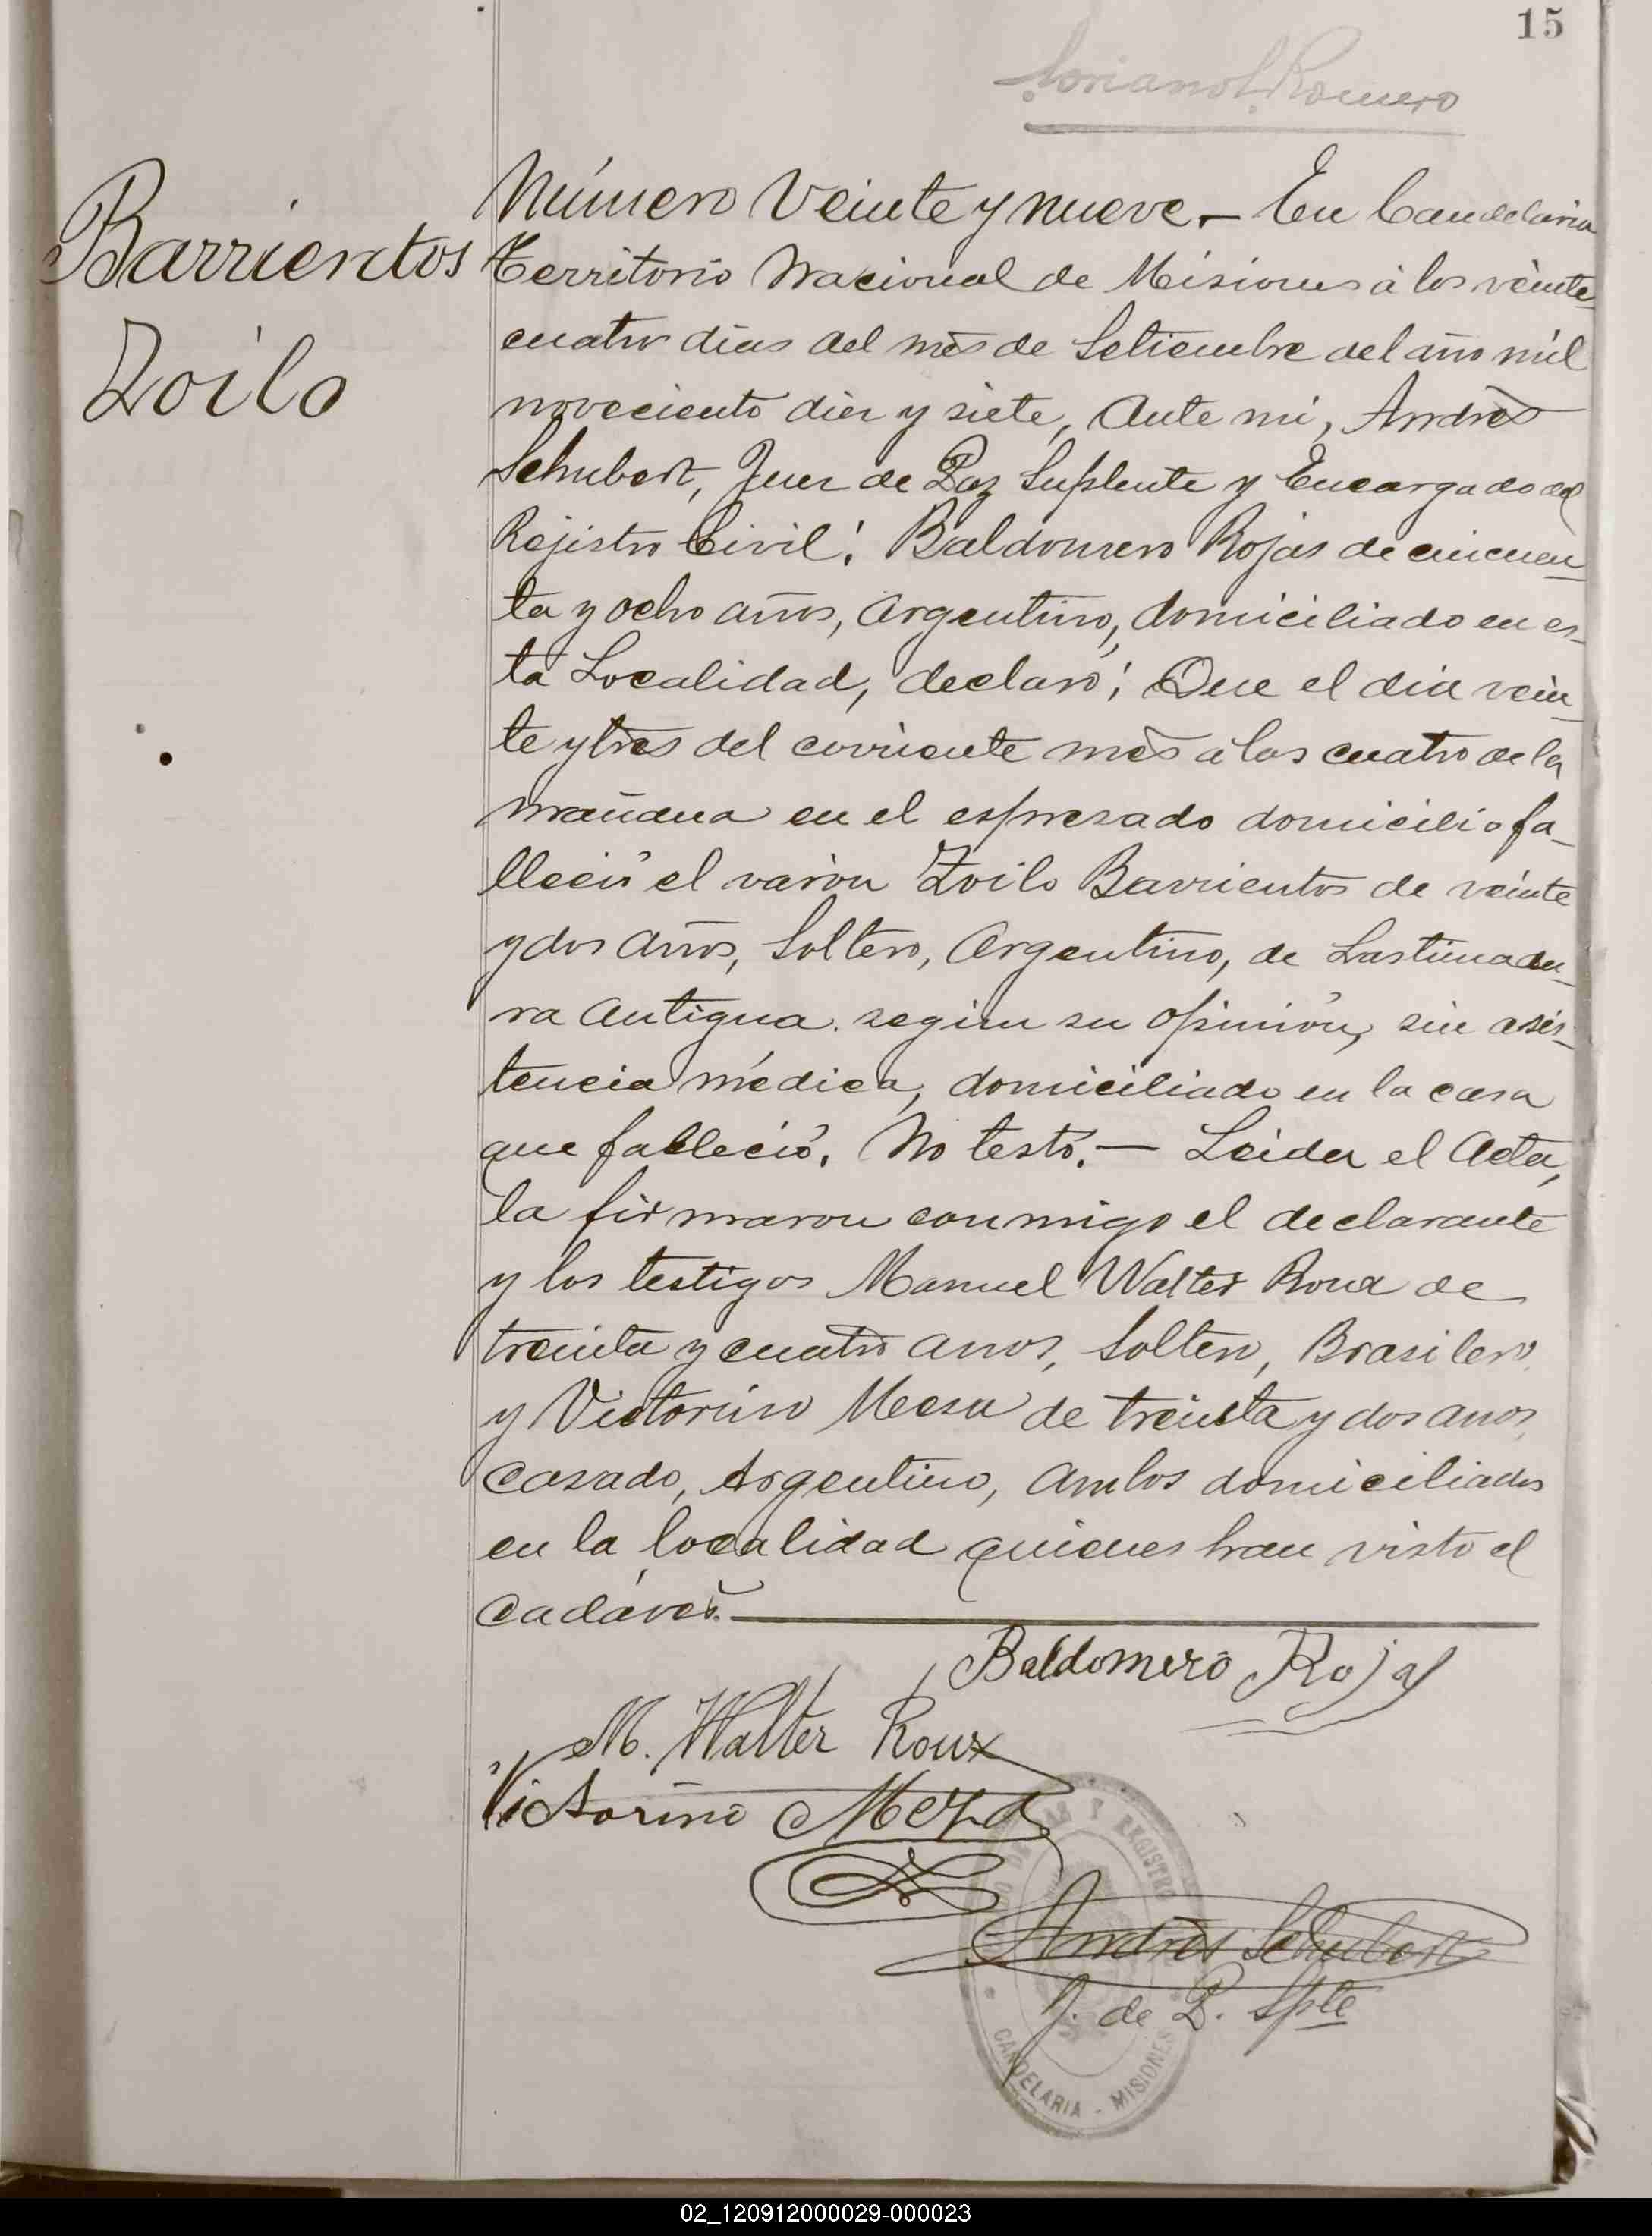 15
Soriano L. Romero
Barrientos
Zoilo
Número Veinte y nueve.- En Candelaria
Territorio Nacional de Misiones à los veinte
cuatro dias del mès de Setiembre del año mil
noveciento diez y siete, Ante mi, Andrès
Schubert, Juez de Paz Suplente y Encargado del
Rejistro Civil: Baldomero Rojas de cincuen_
ta y ocho años, Argentino, domiciliado en es_
ta Localidad, declaró: Que el dia vein_
te y tres del corriente mès à las cuatro de la
mañana en el espresado domicilio fa_
lleció el varòn Zoilo Barrientos de veinte
y dos Años, Soltero, Argentino, de Lastimadu_
ra Antigua segùn su opinión, sin asis_
tencia médica, domiciliado en la casa
que falleció. No testó.- Leida el Acta,
la firmaron conmigo el declarante
y los testigos Manuel Walter Roux de
treinta y cuatro anos, Soltero, Brasilero,
y Victorino Mesa de treinta y dos anos,
casado, Argentino, Ambos domiciliados
en la localidad quienes han visto el
Cadáver.
Baldomero Rojas
M. Walter Roux
Victorino Meza
Andrès Schubert
J. de P. Splte
Y REGISTRO
CANDELARIA - MISIONES
02_120912000029-000023